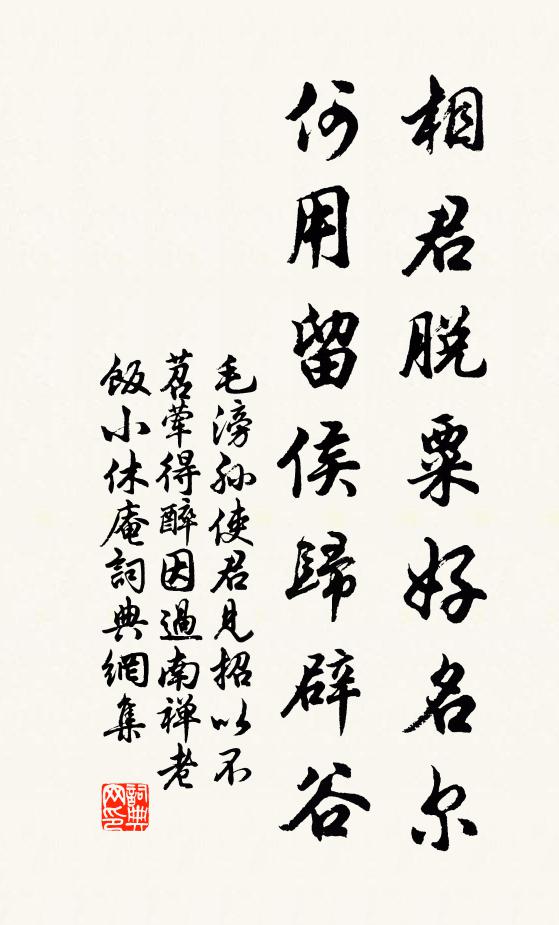 相君脱粟好名尔
何用留侯歸辟谷
毛滂孙使君見招以不
茗荤得醉因過南禅老
飯小休庵詞典網集
詞典
网印